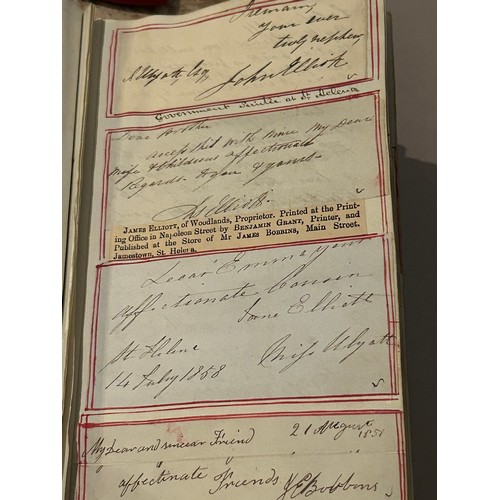 I remain,
Your ever
truly nephew
A Alyatt, Esq, John Elliott
Government Junior at St Helena
Dear Brother
accept this with mine My Dear
Wife & Childrens affectionate
Regards to you & yours
Jas Elliott.
JAMES ELLIOTT, of Woodlands, Proprietor. Printed at the Print-
ing Office in Napoleon Street by BENJAMIN GRANT, Printer, and
Published at the Store of Mr JAMES BOBBINS, Main Street.
Jamestown, St. Helena.
Dear Emma your
affectionate Cousin
Jane Elliott
St Helena Miss Alyatt
14 July 1858
My Dear and sincear Friend 21 August
1851
affectinate Friends J E Bobbins